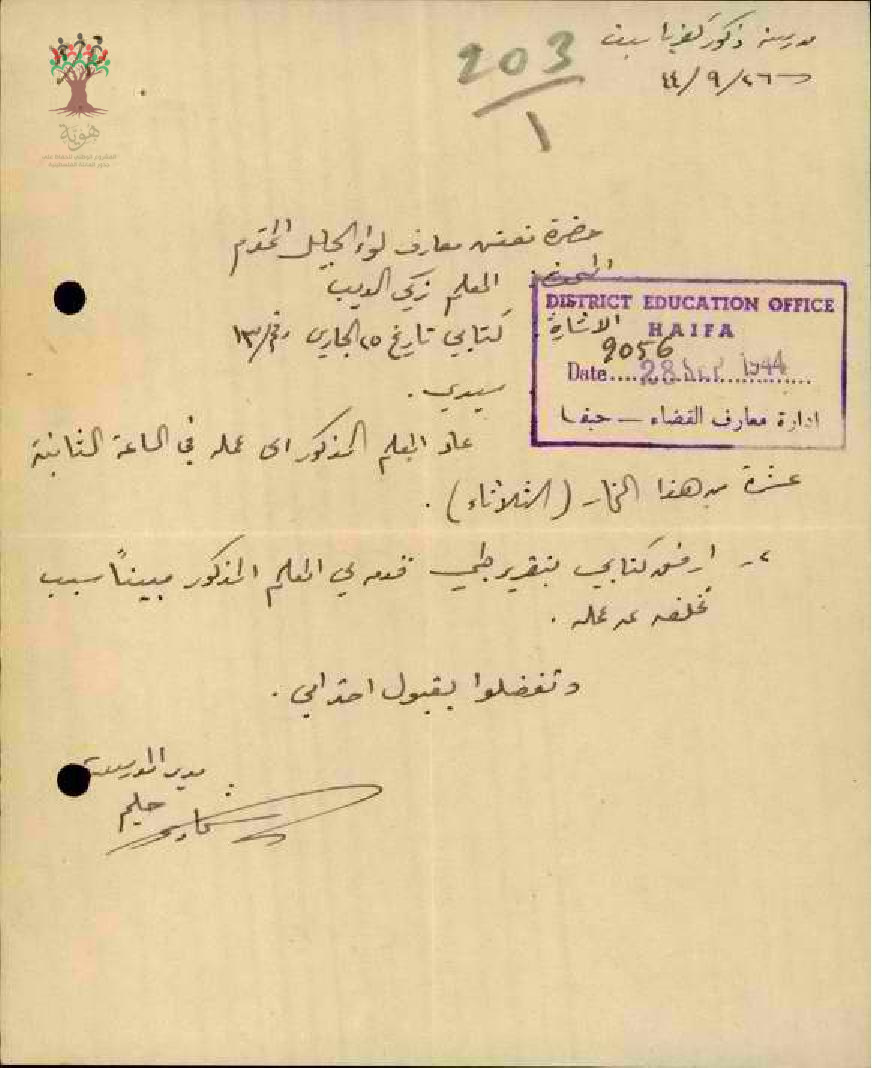 مدرسة ذكور كفرياسيف
٢٦/٩/٤٤
203
١
هوية
المشروع الوطني للحفاظ على
جذور العائلة الفلسطينية
حضرة مفتش معارف لواء الجليل المحترم
الموضوع: المعلم زكي الديب
الاشارة: كتابي تاريخ ٢٥ الجاري رقم ١٣/
DISTRICT EDUCATION OFFICE
HAIFA
9056
Date 28 SEP 1944
ادارة معارف القضاء — حيفا
سيدي.
عاد المعلم المذكور الى عمله في الساعة الثانية
عشرة من هذا النهار (الثلاثاء).
٢- ارفق كتابي بتقرير طبي قدمه لي المعلم المذكور مبيناً سبب
تخلفه عن عمله.
وتفضلوا بقبول احترامي.
مدير المدرسة
حليم